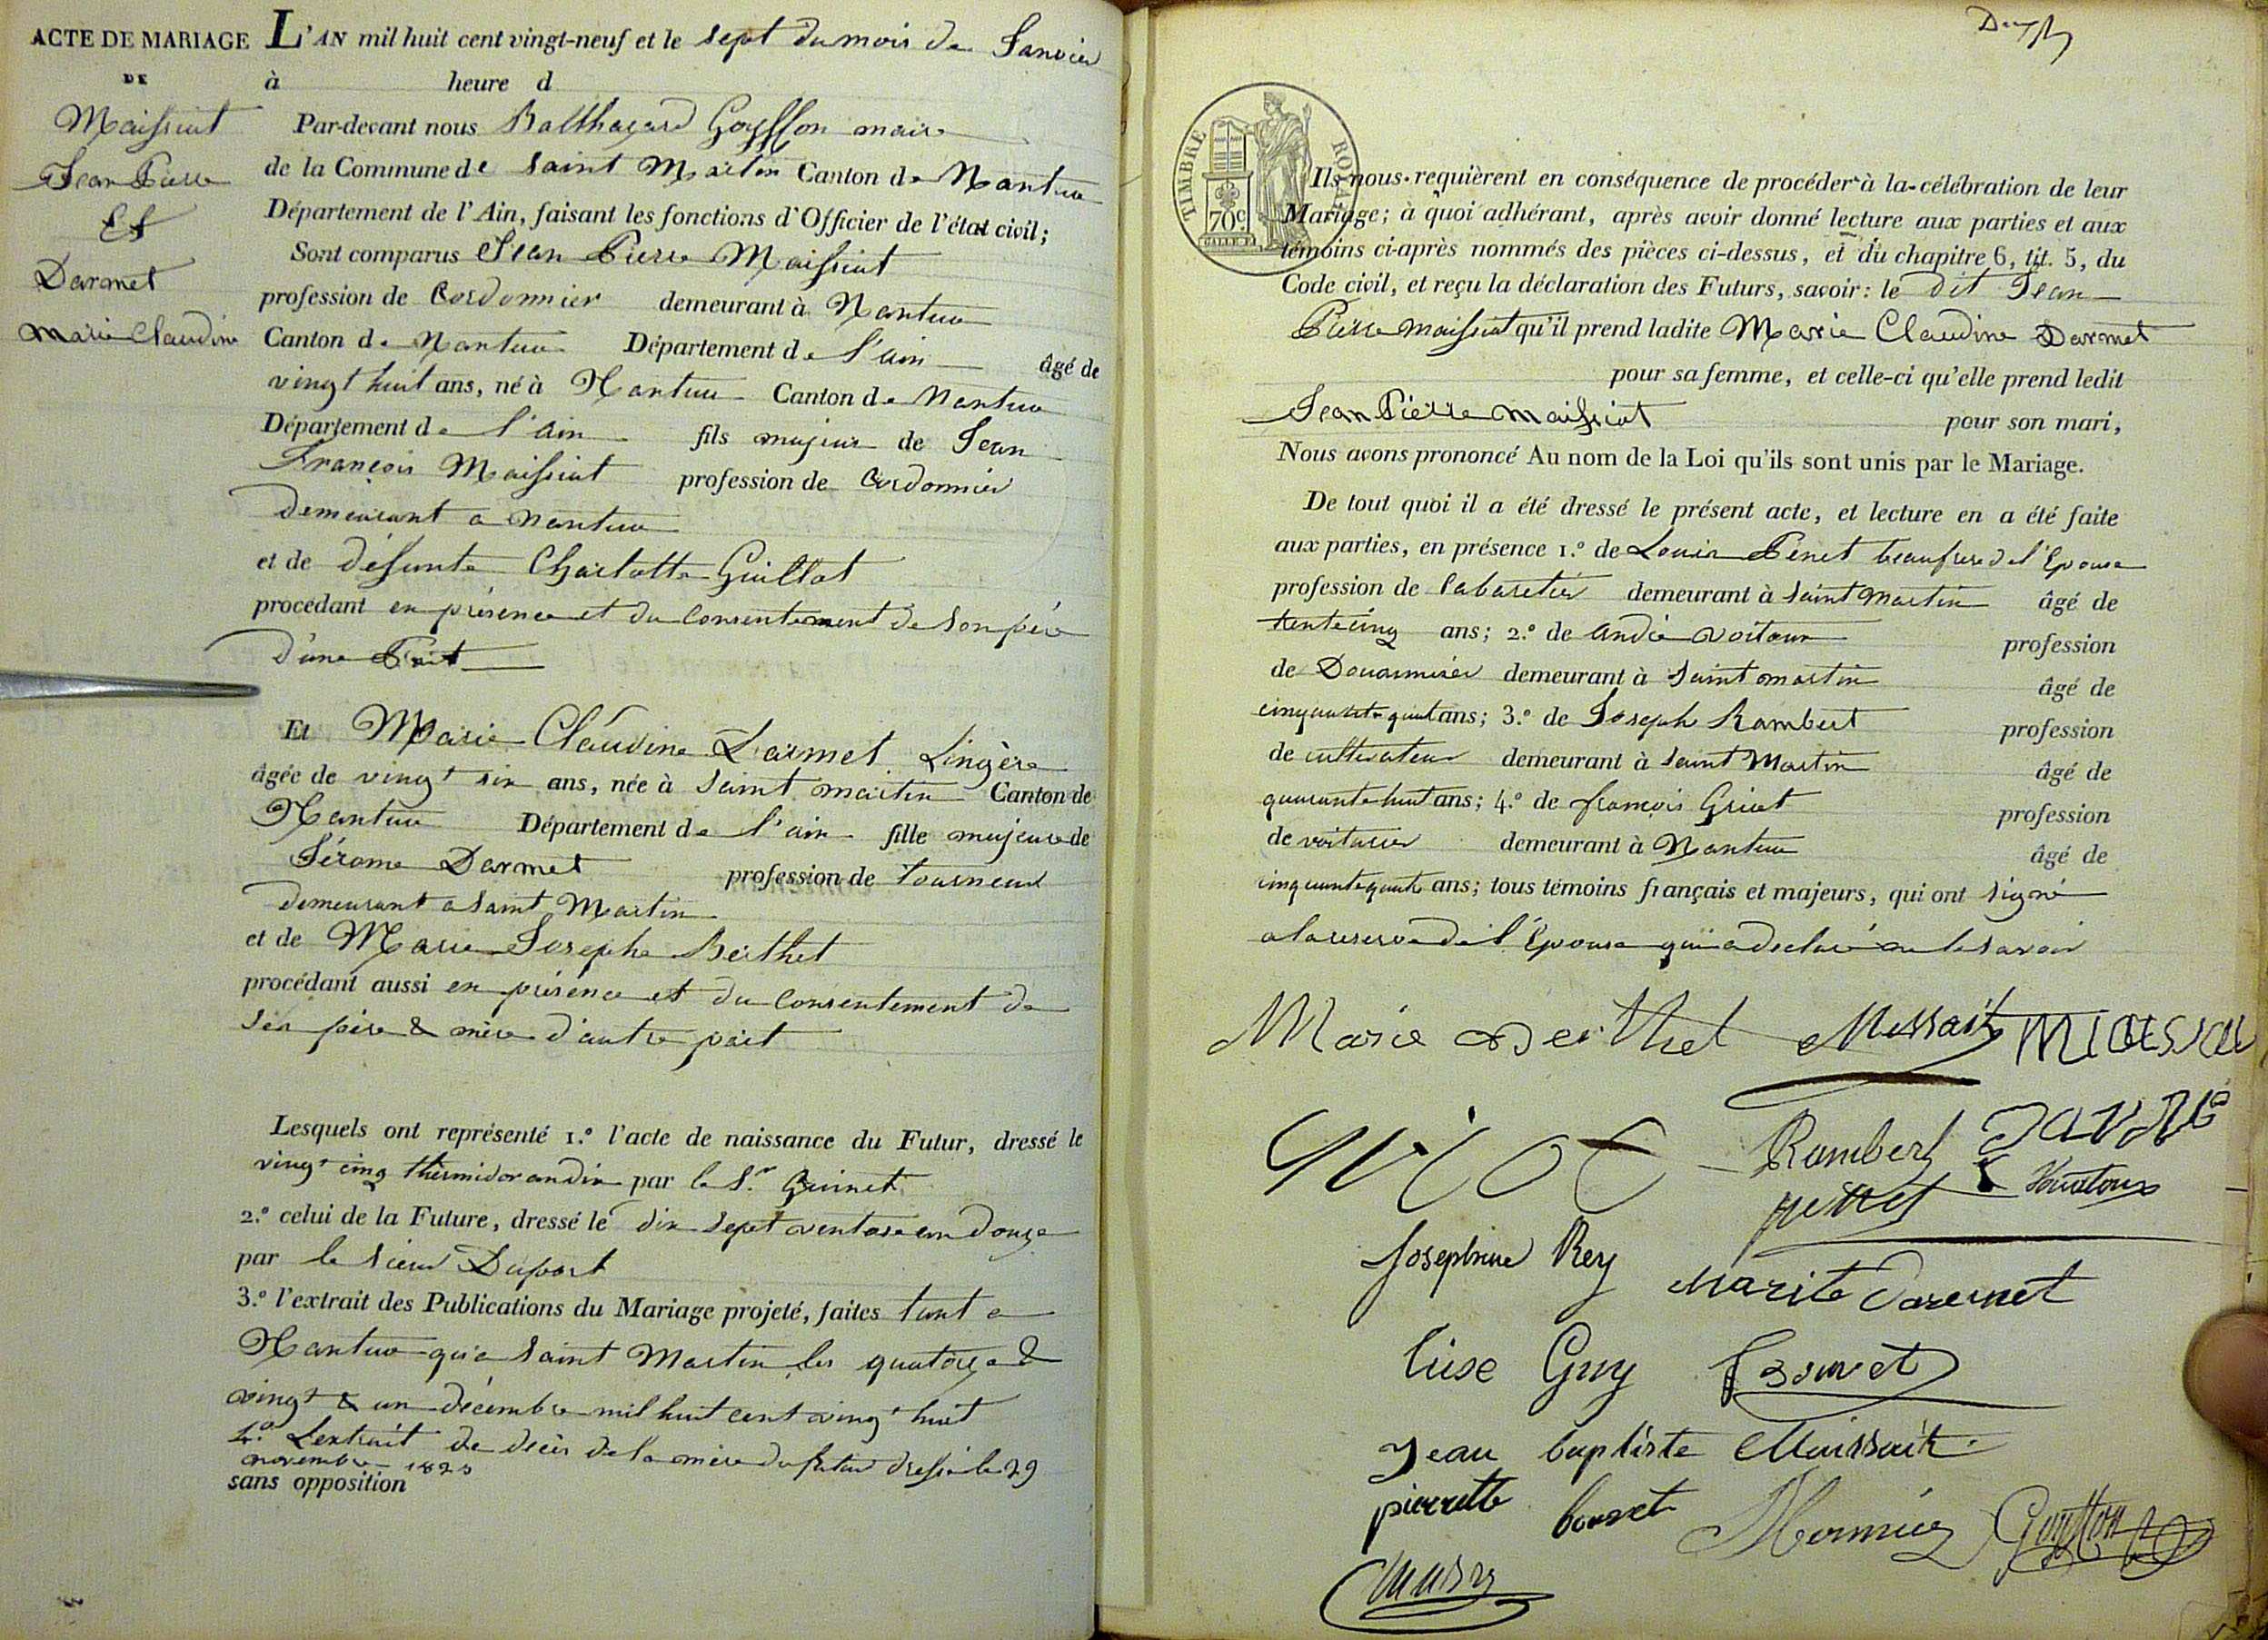 ACTE DE MARIAGE
DE
Maissiat
Jean Pierre
Et
Darmet
Marie Claudine
L'AN mil huit cent vingt-neuf et le sept du mois de Janvier
à heure d
Par-devant nous Balthazard Goyffon maire
de la Commune de Saint Martin Canton de Nantua
Département de l'Ain, faisant les fonctions d'Officier de l'état civil;
Sont comparus Jean Pierre Maissiat
profession de Cordonnier demeurant à Nantua
Canton de Nantua Département de l'ain âgé de
vingt huit ans, né à Nantua Canton de Nantua
Département de l'ain fils majeur de Jean
François Maissiat profession de Cordonnier
demeurant a Nantua
et de défunte Charlotte Guillot
procédant en présence et du Consentement de son père
d'une Part
Et Marie Claudine Darmet Lingère
âgée de vingt six ans, née à Saint martin Canton de
Nantua Département de l'ain fille majeure de
Jérome Darmet profession de tourneur
demeurant a Saint Martin
et de Marie Josephe Berthet
procédant aussi en présence et du Consentement de
ses père & mère d'autre part
Lesquels ont représenté 1.º l'acte de naissance du Futur, dressé le
vingt cinq thermidor an dix par le Sr. Guinet
2.º celui de la Future, dressé le dix sept ventose an douze
par le sieur Duport
3.º l'extrait des Publications du Mariage projeté, faites tant a
Nantua qu'a Saint Martin les quatorze &
vingt & un décembre mil huit cent vingt huit
4.º L'extrait de décès de la mère du futur dressé le 29
novembre
sans opposition
TIMBRE ROYAL
70c
Ils nous requièrent en conséquence de procéder à la célébration de leur
Mariage; à quoi adhérant, après avoir donné lecture aux parties et aux
témoins ci-après nommés des pièces ci-dessus, et du chapitre 6, tit. 5, du
Code civil, et reçu la déclaration des Futurs, savoir: le dit Jean
Pierre Maissiat qu'il prend ladite Marie Claudine Darmet
pour sa femme, et celle-ci qu'elle prend ledit
Jean Pierre Maissiat pour son mari,
Nous avons prononcé Au nom de la Loi qu'ils sont unis par le Mariage.
De tout quoi il a été dressé le présent acte, et lecture en a été faite
aux parties, en présence 1.º de Louis Penet beaufrere de l'Epouse
profession de Cabaretier demeurant à Saint Martin âgé de
trente cinq ans; 2.º de André profession
de Douannier demeurant à Saint martin âgé de
ans; 3.º de Joseph Rambert profession
de cultivateur demeurant à Saint Martin âgé de
quarante huit ans; 4.º de françois Griot profession
de voiturier demeurant à Nantua âgé de
cinquante quatre ans; tous témoins français et majeurs, qui ont signé
a la reserve de l'Epouse qui a declaré ne le savoir
Marie Berthet
Rambert
Josephine Rey
Darmet
Guy
Jean baptiste Maissait
pierrette
Goyffon